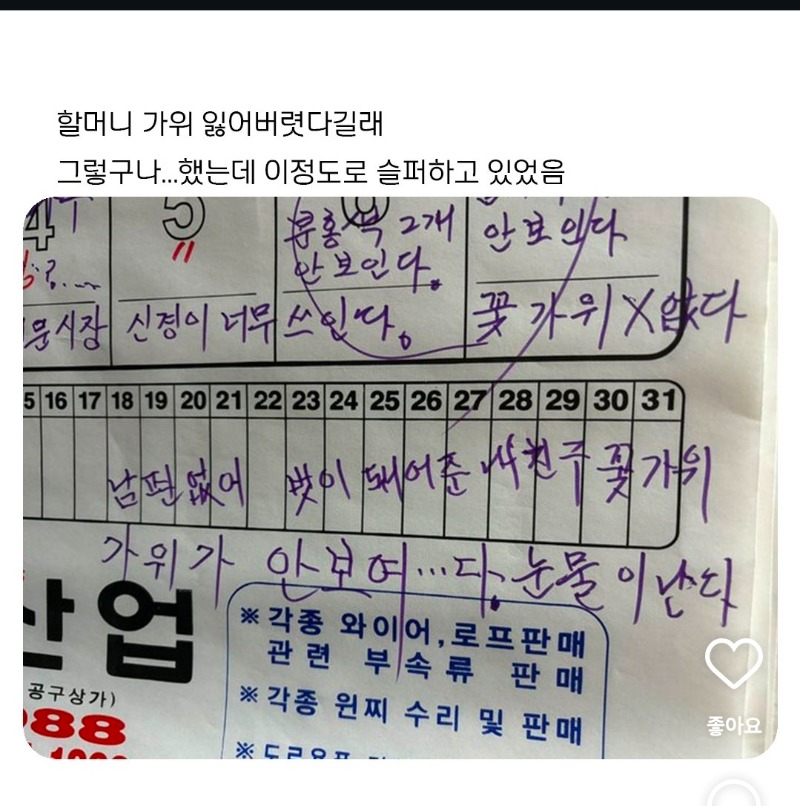 할머니 가위 잃어버렷다길래
그렇구나...했는데 이정도로 슬퍼하고 있었음
4 5
분홍색 2개 안보인다
안보인다.
문시장 신경이 너무 쓰인다. 꽃가위 X 없다
5 16 17 18 19 20 21 22 23 24 25 26 27 28 29 30 31
남편없어 벗이 돼어준 꽃가위
가위가 안보여...다. 눈물이난다
산업
※각종 와이어,로프판매
관련 부속류 판매
공구상가)
※각종 윈찌 수리 및 판매
988
좋아요